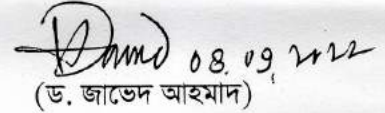 08.09.2022
(ড. জাভেদ আহমাদ)